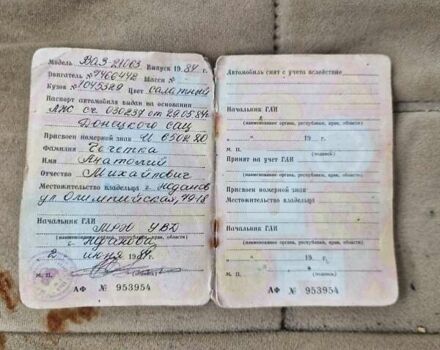 Модель ВАЗ-21063 Выпуск 1984 г.
Двигатель № 7460448 Шасси №
Кузов № 1045329 Цвет салатный
Паспорт автомобиля выдан на основании
от 29.05.84г
Донецкого сац
Присвоен номерной знак
Фамилия Чечетка
Имя Анатолий
Отчество Михайлович
Местожительство владельца г. Жданов
ул Олимпийская,
Начальник ГАИ МРЭ УВД
(наименование органа, республики, края, области)
г Жданова
2 июня 1984 г.
М. П.
АФ № 953954
Автомобиль снят с учета вследствие
Начальник ГАИ
(наименование органа, республики, края, области)
" " 19 г.
М. П. (подпись)
Принят на учет ГАИ
(наименование органа, республики, края, области)
Присвоен номерной знак
Местожительство владельца
Начальник ГАИ
(наименование органа, республики, края, области)
" " 19 г.
М. П. (подпись)
АФ № 953954